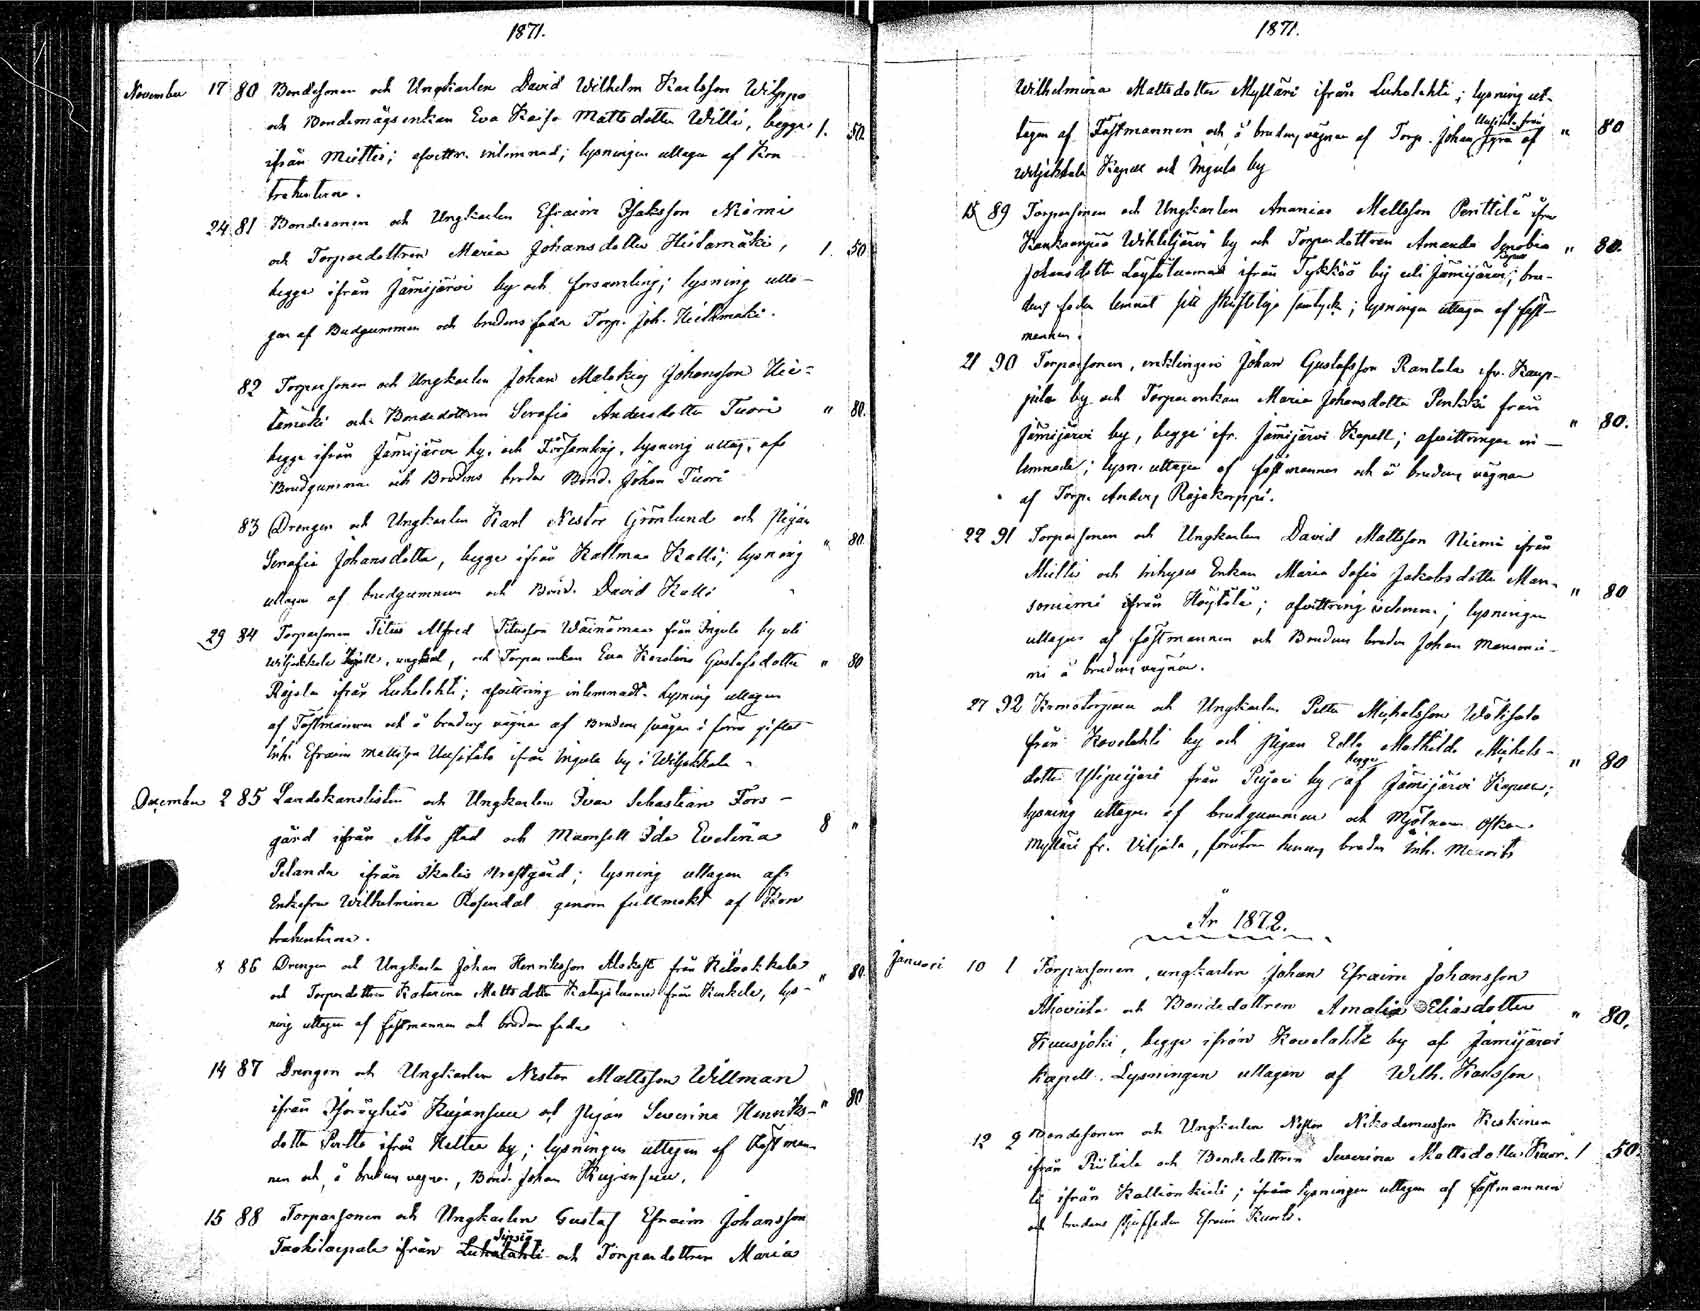 1871.
November 17 80 Bondesonen och Ungkarlen David Wilhelm Karlsson Wilppo
och Bondemågsenkan Eva Kaisa Mattsdotter Willi, begge 1. 50
ifrån Miettis; afvittr. inlemnad; lysningen uttagen af Kon-
trahenterne.
24 81 Bondesonen och Ungkarlen Efraim Isaksson Niemi
och Torparedottren Maria Johansdotter Hietamäki, 1. 50
begge ifrån Jämijärvi by och församling; lysning utta-
gen af Budgummen och brudens fader Torp. Joh. Hietamäki.
82 Torparesonen och Ungkarlen Johan Malakias Johansson Hie-
tamäki och Bondedottren Serafia Andersdotter Tuori " 80.
begge ifrån Jämijärvi by och Församling, lysning uttag. af
Brudgummen och Brudens broder Bond. Johan Tuori
83 Drengen och Ungkarlen Karl Nestor Grönlund och Pigan
Serafia Johansdotter, begge ifrån Kallmaa Kalli; lysning " 80
uttagen af brudgummen och Bond. David Kalli
29 84 Torparesonen Titus Alfred Titusson Wäinämaa från Ingula by uti
Wiljakkala Kapell, ungkarl, och Torpareenkan Eva Karolina Gustafsdotter " 80
Rajala ifrån Luhalahti; afvittring inlemnadt. Lysning uttagen
af Fästmannen och å brudens vägnar af Brudens svåger i förra giftet
Inh. Efraim Mattsson Uusitalo ifrån Ingula by i Wiljakkala
December 2 85 Landskanslisten och Ungkarlen Ivar Sebastian Fors-
gård ifrån Åbo stad och Mamsell Ida Evelina 8 "
Pelander ifrån Ikalis Prestgård; lysning uttagen af
Enkefru Wilhelmina Rosendal genom fullmakt af Kon
trahenterna.
8 86 Drengen och Ungkarlen Johan Henriksson från Kilvakkala " 80.
och Torparedottren Katarina Mattsdotter från Kurkela, lys-
ning uttagen af fästmannen och brudens fader
14 87 Drengen och Ungkarlen Nestor Mattsson Willman
ifrån Isoröyhiö Kujansuu och Pigan Severina Henriks- " 80
dotter Pertto ifrån Heltee by; lysningen uttagen af Fästman-
nen och, å brudens vägnar, Bond. Johan Kujansuu.
15 88 Torparesonen och Ungkarlen Gustaf Efraim Johansson
Sipsiö
ifrån Luhalahti och Torparedottren Maria
1871.
Wilhelmina Mattsdotter Mylläri ifrån Luhalahti; lysning ut-
Uusitalo från
tagen af Fästmannen och å brudens vägnar af Torp. Johan af " 80
Wiljakkala Kapell och Ingula by
15 89 Torparesonen och Ungkarlen Ananias Mattsson Penttilä ifrån
Kankaanpää Wihteljärvi by och Torparedottren Amanda Senobia " 80.
Kapell
Johansdotter ifrån Tykköö by uti Jämijärvi; bru-
dens fader lemnat sitt skriftliga samtycke; lysningen uttagen af fäst-
mannen.
21 90 Torparesonen, enklingen Johan Gustafsson Rantala ifr. Kaup-
pila by och Torpareenkan Maria Johansdotter Penkki från
Jämijärvi by, begge ifr. Jämijärvi Kapell; afvittringen in- " 80.
lemnade; lysn. uttagen af fästmannen och å brudens vägnar
af Torp. Anders Rajakorppi.
22 91 Torparesonen och Ungkarlen David Mattsson Niemi ifrån
Miettis och Inhyses Enkan Maria Sofia Jakobsdotter Man-
soniemi ifrån Höytölä; afvittring inlemn.; lysningen " 80
uttagen af fästmannen och Brudens broder Johan Mansonie-
mi å brudens vägnar.
27 92 Kronotorparen och Ungkarlen Petter Michelsson Wälisalo
från Kovelahti by och Pigan Edla Mathilda Michels-
begge
dotter Ylipeijari från Peijari by af Jämijärvi Kapell; " 80
lysning uttagen af brudgummen och Mjölnaren Oskar
Myllari fr. Viljala, förutom hennes broder Inh. Mauritz
År 1872.
Januari 10 1 Torparesonen, ungkarlen Johan Efraim Johansson
Ahoviita och Bondedottren Amalia Eliasdotter
Kuusjoki, begge ifrån Kovelahti by af Jämijärvi " 80.
Kapell. Lysningen uttagen af Wilh. Karlsson
12 2 Bondesonen och Ungkarlen Nestor Nikodemusson Keskinen
ifrån Riitiala och Bondedottren Severina Mattsdotter Kuor- 1 50.
ti ifrån Kallionkieli; ifrån lysningen uttagen af fästmannen
och brudens styffader Efraim Kuorti.